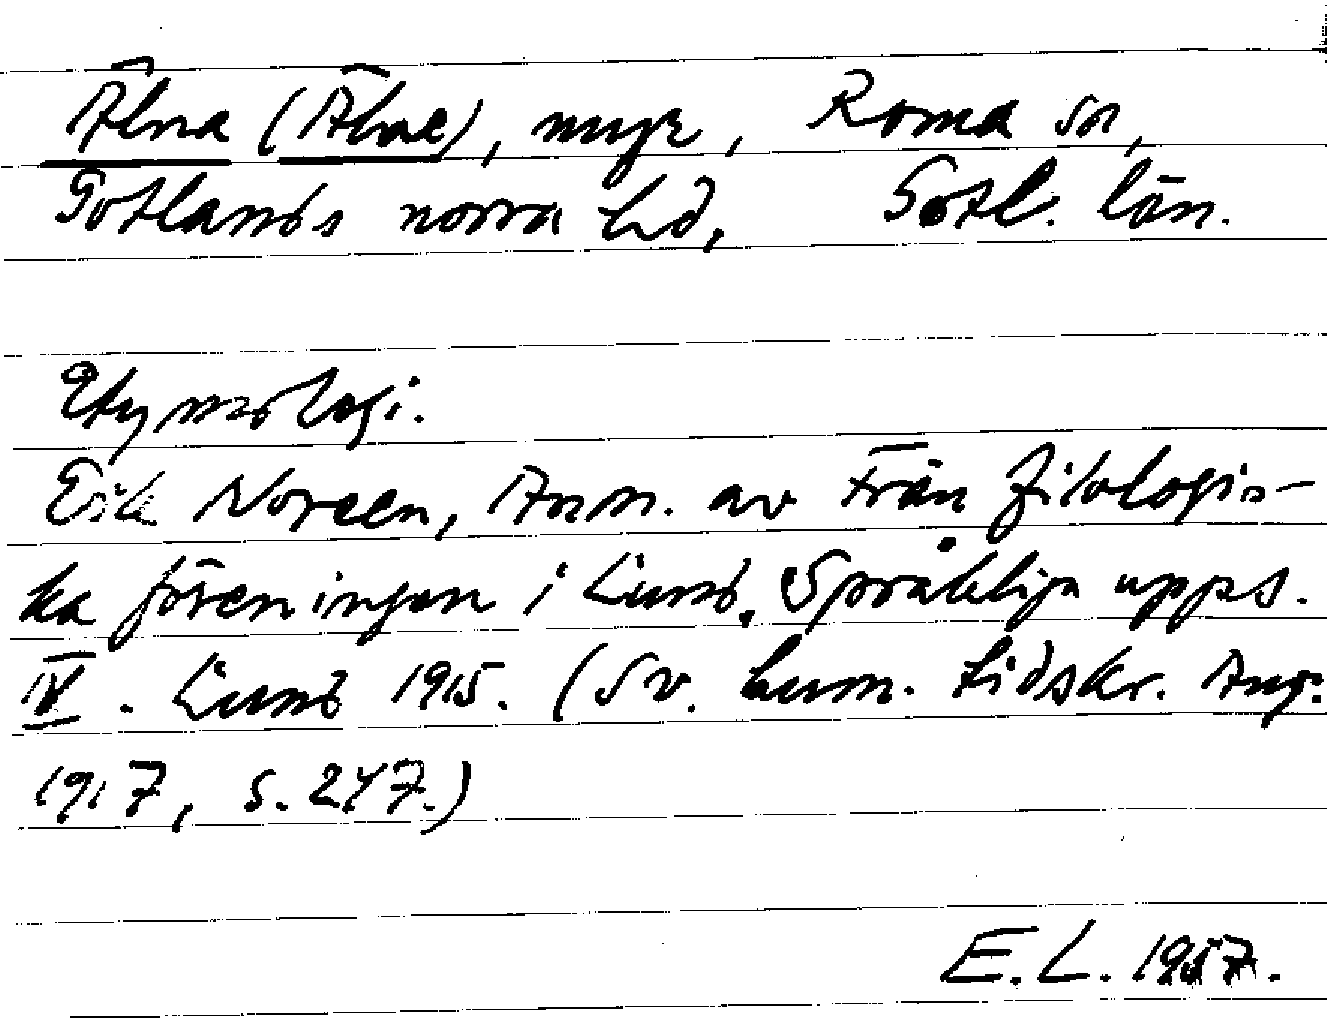 Älna (Älnae), myr, Roma sn,
Gotlands norra hd, Gotl. län.
Etymologi.
Erik Noreen, Anm. av Från filologis-
ka föreningen i Lund. Språkliga upps.
IV. Lund 1915. (Sv. hum. tidskr. Arg.
1917, s. 247.)
E. L. 1957.